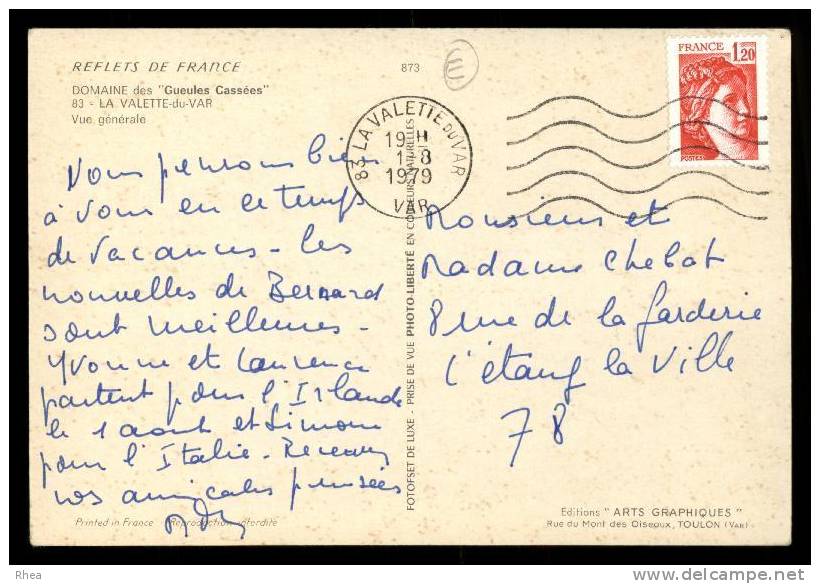 REFLETS DE FRANCE
DOMAINE des "Gueules Cassées"
83 - LA VALETTE-du-VAR
Vue générale
873
83 LA VALETTE DU VAR
19 H
1-8
1979
VAR
FRANCE
1,20
POSTES
Nous pensons bien
à vous en ce temps
de vacances - les
nouvelles de Bernard
sont meilleures -
Yvonne et Laurence
partent pour l'Irlande
le 1 août et Simone
pour l'Italie - Recevez
nos amicales pensées
FOTOFSET DE LUXE - PRISE DE VUE PHOTO-LIBERTÉ EN COULEURS NATURELLES
Monsieur et
Madame Chebat
8 rue de la Garderie
L'étang la Ville
78
Printed in France - Reproduction interdite
Editions "ARTS GRAPHIQUES"
Rue du Mont des Oiseaux, TOULON (VAR)
Rhea
delcampe.net